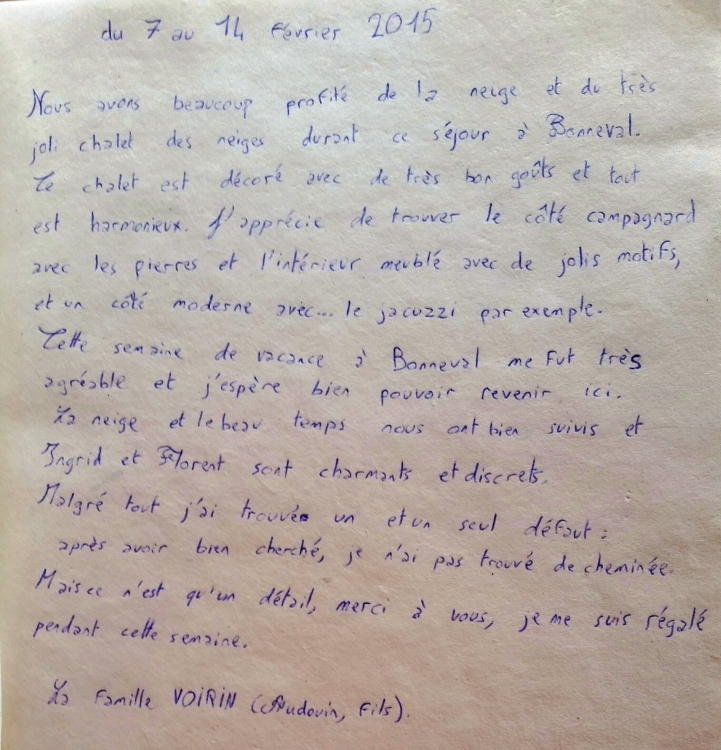 du 7 au 14 Février 2015
Nous avons beaucoup profité de la neige et du très
joli chalet des neiges durant ce séjour à Bonneval.
Le chalet est décoré avec de très bon goûts et tout
est harmonieux. J'apprécie de trouver le côté campagnard
avec les pierres et l'intérieur meublé avec de jolis motifs,
et un côté moderne avec... le jacuzzi par exemple.
Cette semaine de vacance à Bonneval me fut très
agréable et j'espère bien pouvoir revenir ici.
La neige et le beau temps nous ont bien suivis et
Ingrid et Florent sont charmants et discrets.
Malgré tout j'ai trouvé un et un seul défaut :
après avoir bien cherché, je n'ai pas trouvé de cheminée.
Mais ce n'est qu'un détail, merci à vous, je me suis régalé
pendant cette semaine.
La Famille VOIRIN (Audouin, Fils).